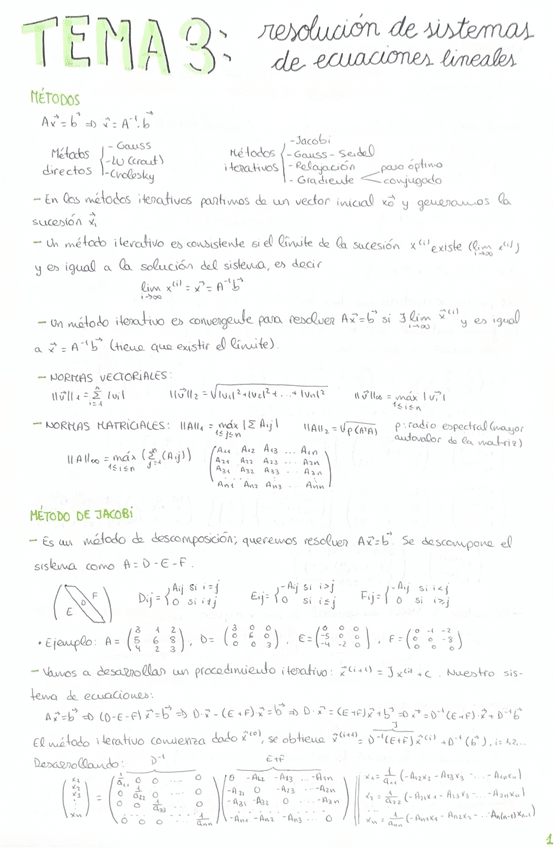 TEMA 3: resolución de sistemas
de ecuaciones lineales
MÉTODOS
Ax⃗ = b⃗ ⇒ x⃗ = A⁻¹·b⃗
Métodos directos { - Gauss - LU (Crout) - Cholesky
Métodos iterativos { - Jacobi - Gauss-Seidel - Relajación - Gradiente < paso óptimo conjugado
- En los métodos iterativos partimos de un vector inicial x₀⃗ y generamos la
sucesión x⃗ᵢ
- Un método iterativo es consistente si el límite de la sucesión x⁽ⁱ⁾ existe (lim i→∞ x⁽ⁱ⁾)
y es igual a la solución del sistema, es decir
lim i→∞ x⁽ⁱ⁾ = x⃗ = A⁻¹b⃗
- Un método iterativo es convergente para resolver Ax⃗ = b⃗ si ∃ lim i→∞ x⃗⁽ⁱ⁾ y es igual
a x⃗ = A⁻¹b⃗ (tiene que existir el límite).
- NORMAS VECTORIALES:
||v⃗||₁ = Σ |vᵢ| ||v⃗||₂ = √|v₁|²+|v₂|²+...+|vₙ|² ||v⃗||∞ = máx 1≤i≤n |vᵢ|
- NORMAS MATRICIALES: ||A||₁ = máx 1≤j≤n |Σ Aᵢⱼ| ||A||₂ = √ρ(AᵗA) ρ: radio espectral (mayor
autovalor de la matriz)
||A||∞ = máx 1≤i≤n (Σ (Aᵢⱼ)) (A₁₁ A₁₂ A₁₃ ... A₁ₙ
A₂₁ A₂₂ A₂₃ ... A₂ₙ
A₃₁ A₃₂ A₃₃ ... A₃ₙ
Aₙ₁ Aₙ₂ Aₙ₃ ... Aₙₙ)
MÉTODO DE JACOBI
- Es un método de descomposición; queremos resolver Ax⃗ = b⃗. Se descompone el
sistema como A = D - E - F.
E D F Dᵢⱼ = { Aᵢⱼ si i=j 0 si i≠j Eᵢⱼ = { -Aᵢⱼ si i>j 0 si i≤j Fᵢⱼ = { -Aᵢⱼ si i<j 0 si i≥j
• Ejemplo: A = (3 1 2 / 5 6 8 / 4 2 3), D = (3 0 0 / 0 6 0 / 0 0 3), E = (0 0 0 / -5 0 0 / -4 -2 0), F = (0 -1 -2 / 0 0 -8 / 0 0 0)
- Vamos a desarrollar un procedimiento iterativo: x⃗⁽ⁱ⁺¹⁾ = Jx⁽ⁱ⁾ + c. Nuestro sis-
tema de ecuaciones:
Ax⃗ = b⃗ ⇒ (D-E-F)x⃗ = b⃗ ⇒ D·x⃗ - (E+F)x⃗ = b⃗ ⇒ D·x⃗ = (E+F)x⃗ + b⃗ ⇒ x⃗ = D⁻¹(E+F)·x⃗ + D⁻¹b⃗
El método iterativo comienza dado x⃗⁽⁰⁾, se obtiene x⃗⁽ⁱ⁺¹⁾ = D⁻¹(E+F) x⃗⁽ⁱ⁾ + D⁻¹(b⃗), i=1,2,...
J
Desarrollando: D⁻¹ E+F